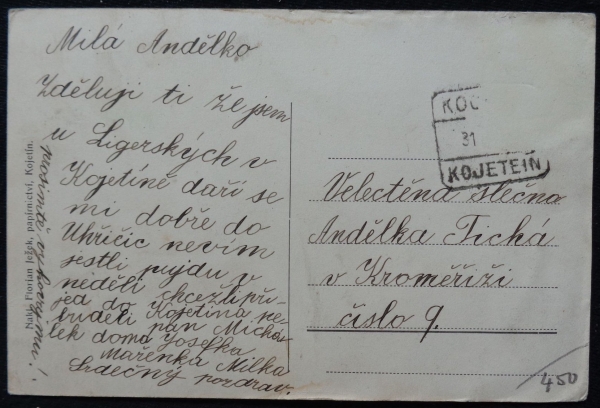 Milá Andělko
Zděluji ti že jsem
u Ligerských v
Kojetíně daří se
mi dobře do
Uhřičic nevím
jestli pujdu v
neděli chceš-li při-
jed do Kojetína ne
budeli pan Michá-
lek doma Josefka
Mařenka Milka
Srdečný pozdrav.
Nakl. Florian Ježek, papírnictví, Kojetín.
KOJETEIN
31
Velectěná slečna
Andělka Tichá
v Kroměříži
číslo 9.
450